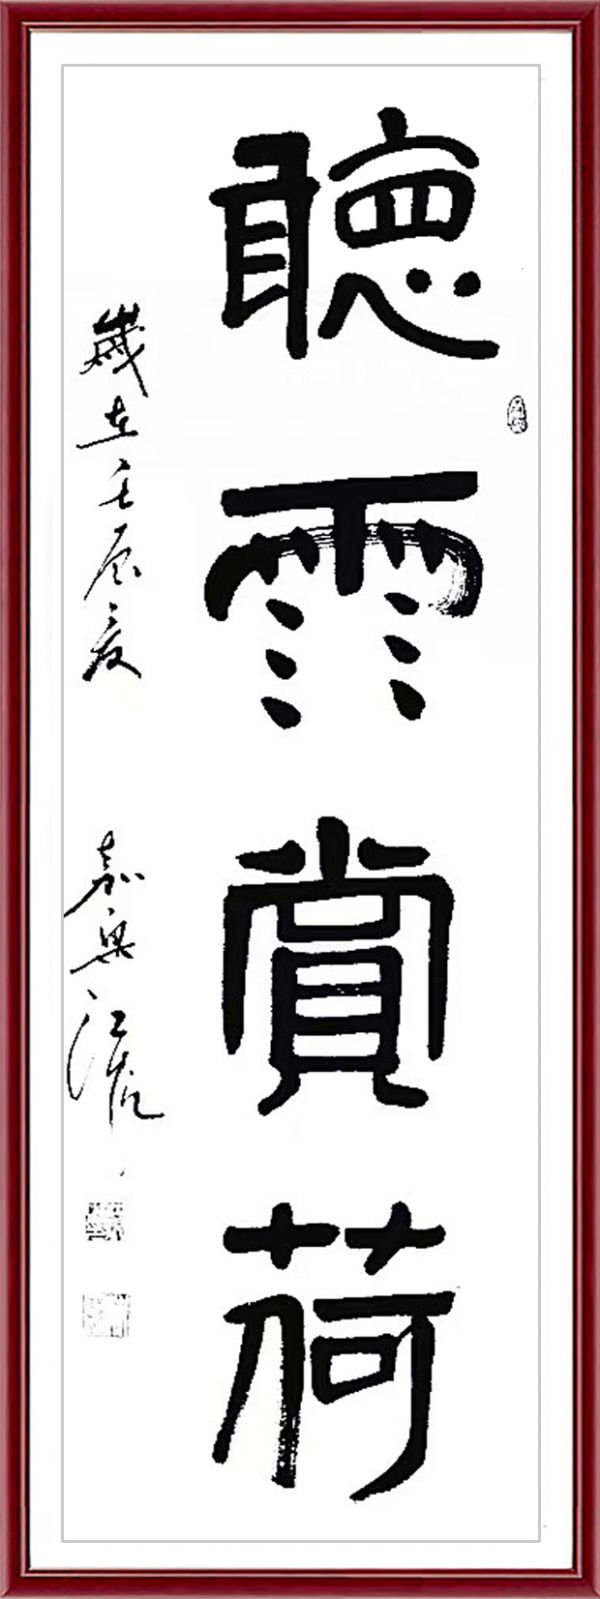 聽雨賞荷
歲在壬辰夏
嘉興